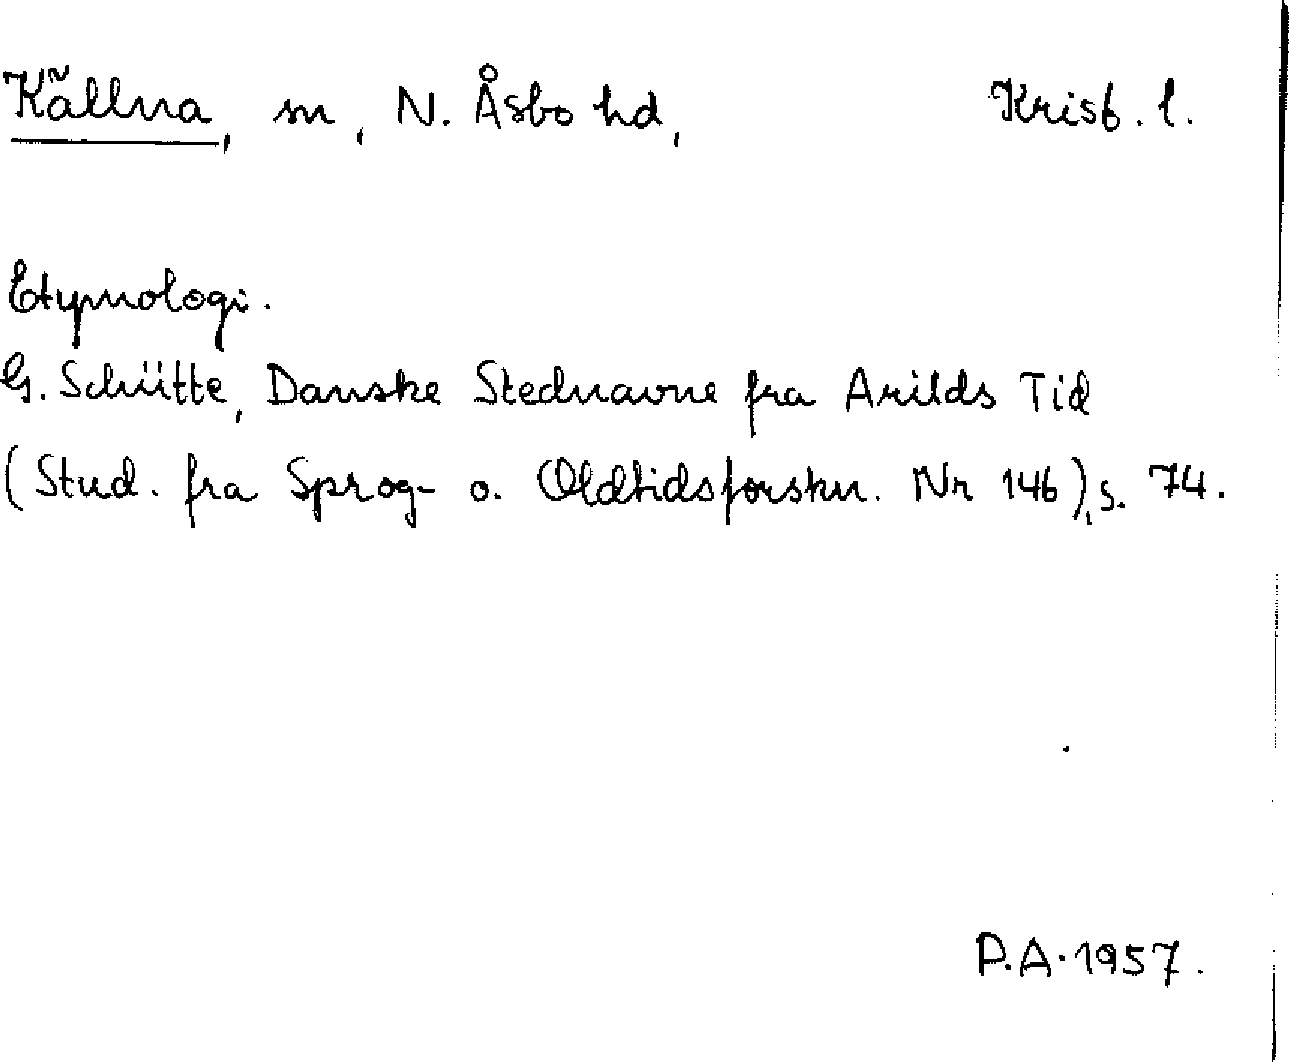 Källna, sn, N. Åsbo hd, Krist. l.
Etymologi.
G. Schütte, Danske Stednavne fra Arilds Tid
(Stud. fra Sprog- o. Oldtidsforskn. Nr 146), s. 74.
P.A. 1957.